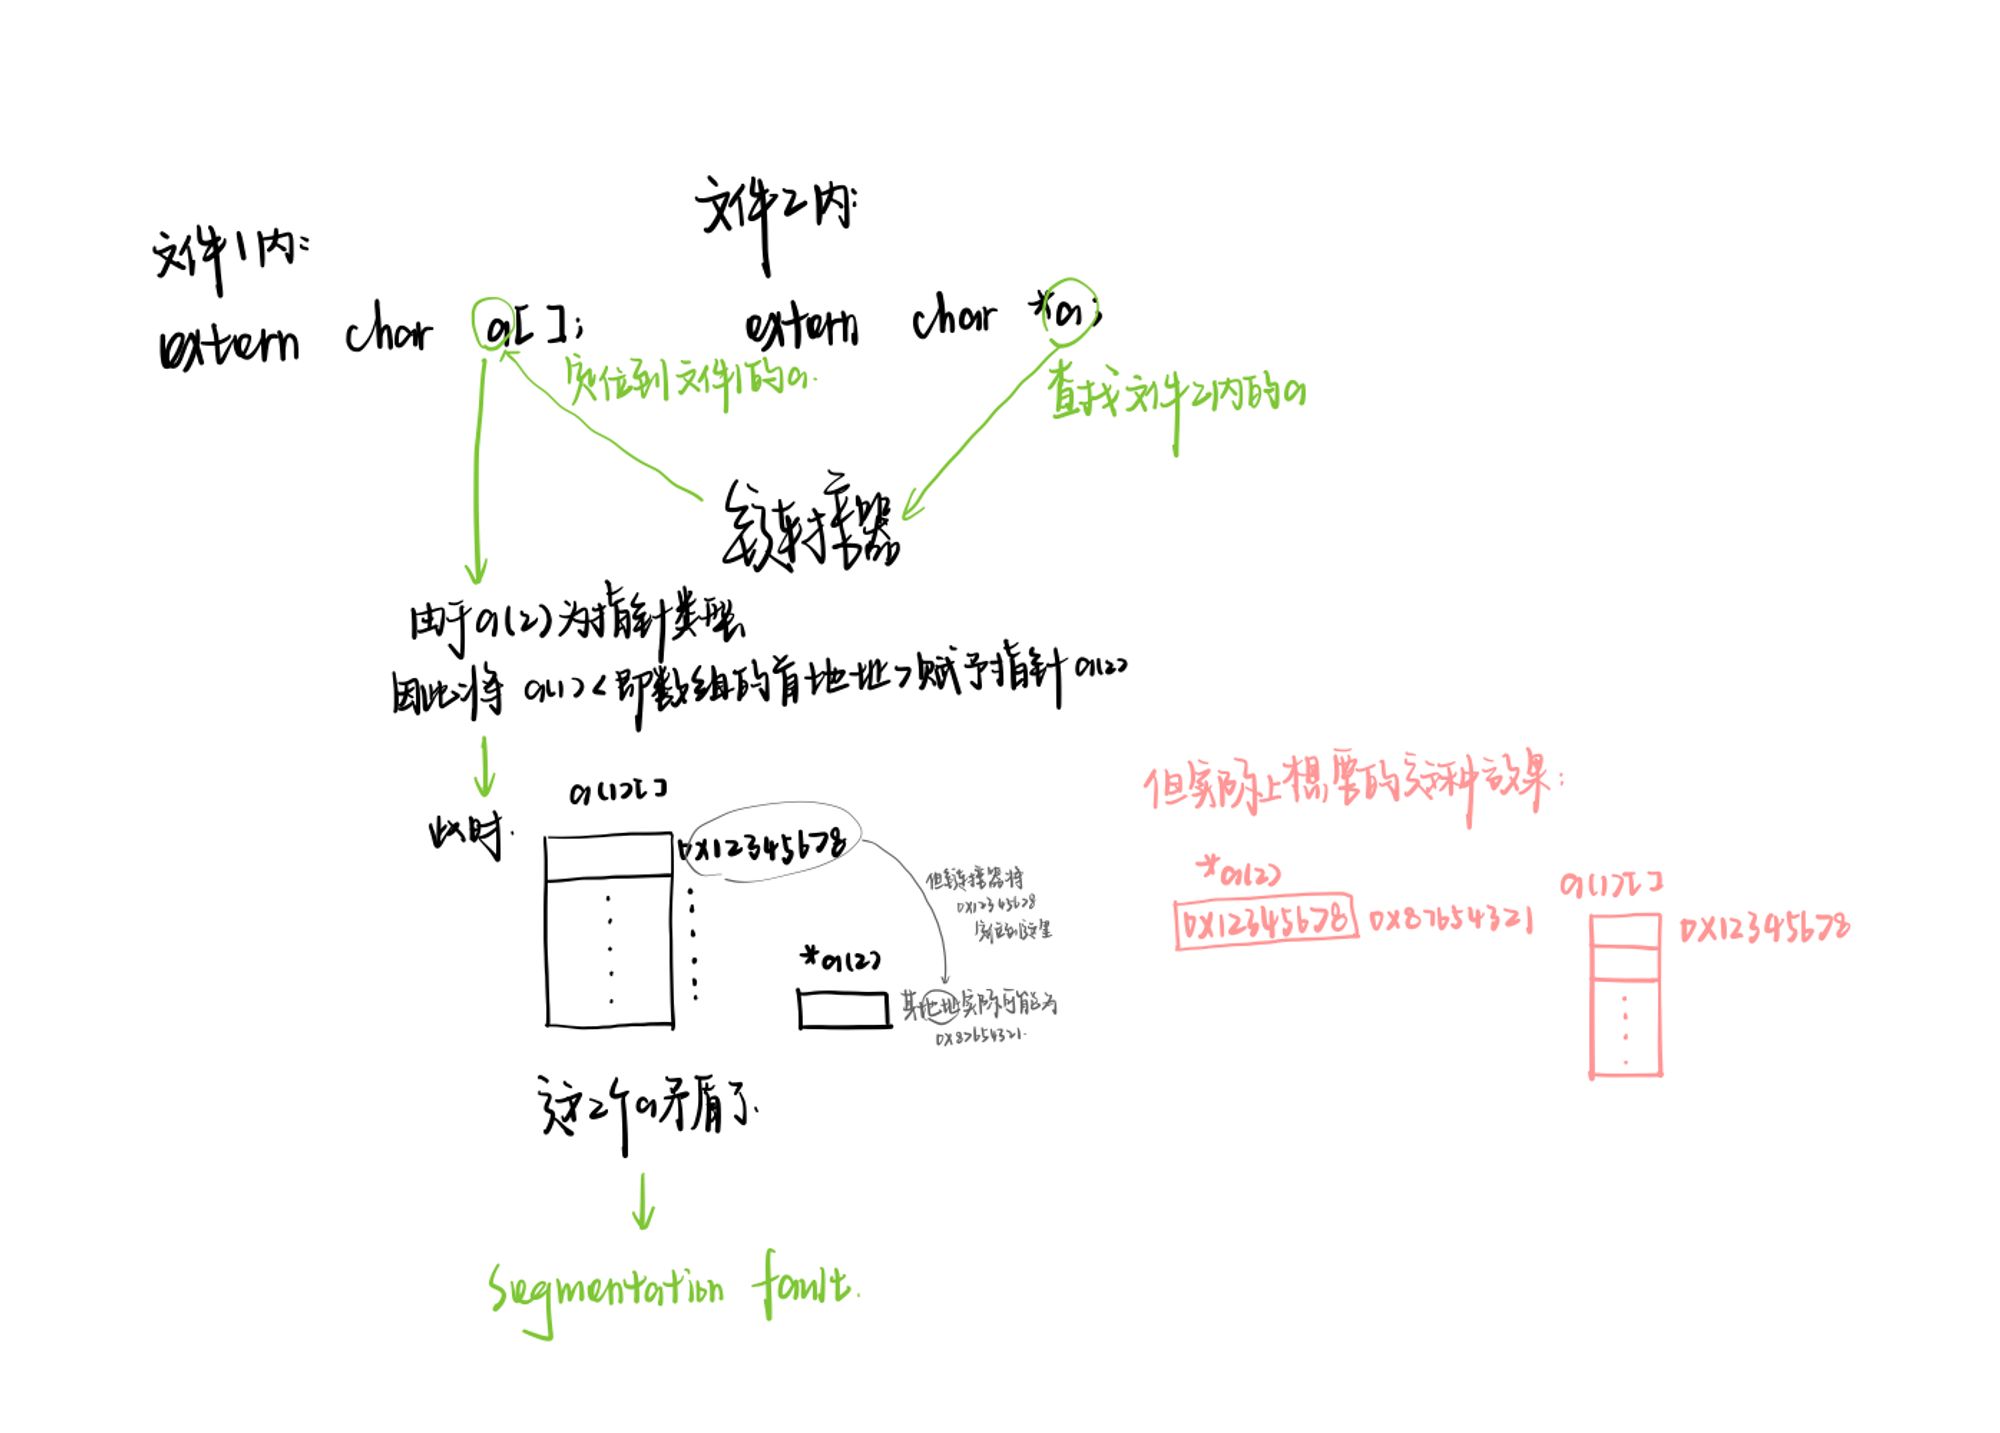 文件1内:
extern char a[];
文件2内:
extern char *a;
定位到文件1的a.
查找文件2内的a
链接器
由于a(2)为指针类型
因此将 a(1)<即数组的首地址>赋予指针a(2)
此时.
a(1)[]
0x12345678
但链接器将
0x12345678
定位到这里
*a(2)
其地址实际可能为
0x87654321.
这2个a矛盾了.
Segmentation fault.
但实际上想要的这种效果:
*a(2)
0x12345678 0x87654321
a(1)[]
0x12345678